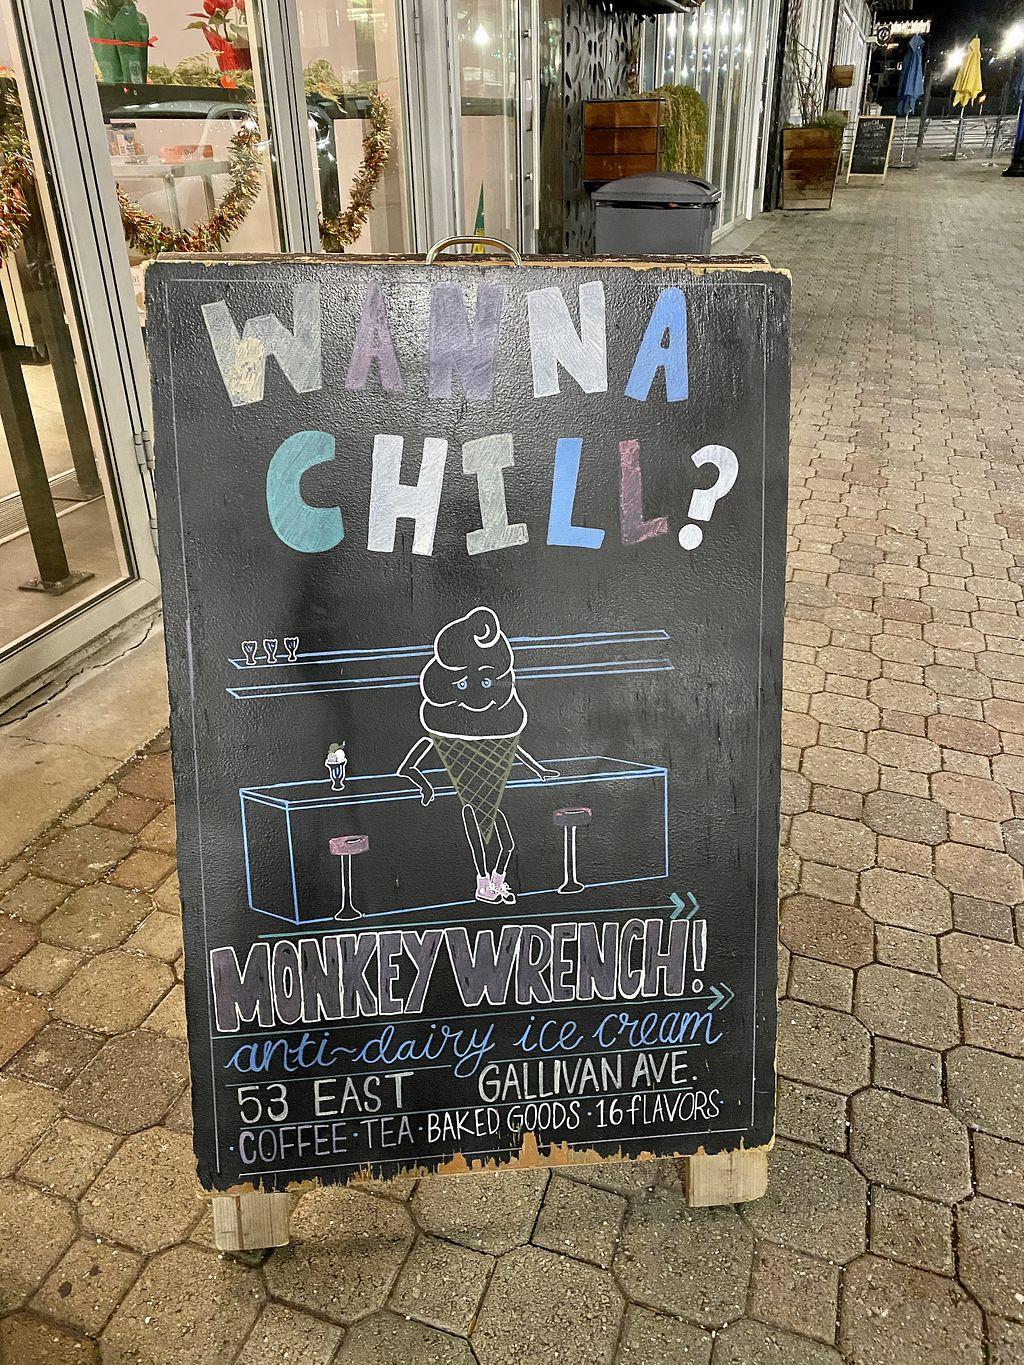 WANNA
CHILL?
MONKEYWRENCH!
anti-dairy ice cream
53 EAST GALLIVAN AVE.
·COFFEE·TEA·BAKED GOODS·16 fLAVORS·